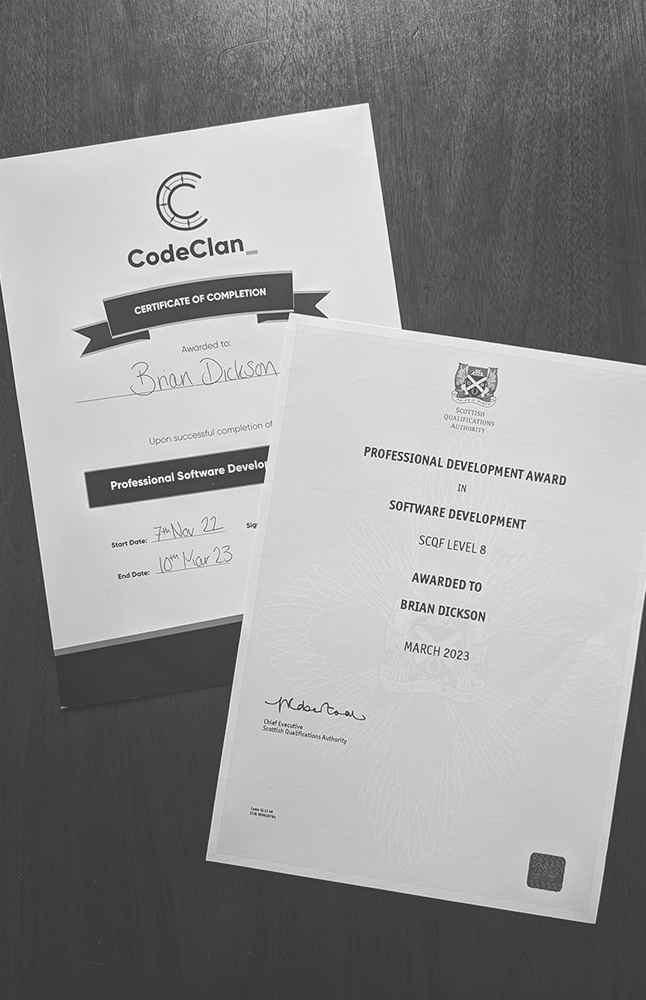 CodeClan_
CERTIFICATE OF COMPLETION
Awarded to:
Brian Dickson
Upon successful completion of
Professional Software Develo
Start Date: 7th Nov 22 Sig
End Date: 10th Mar 23
SCOTTISH
QUALIFICATIONS
AUTHORITY
PROFESSIONAL DEVELOPMENT AWARD
IN
SOFTWARE DEVELOPMENT
SCQF LEVEL 8
AWARDED TO
BRIAN DICKSON
MARCH 2023
Chief Executive
Scottish Qualifications Authority